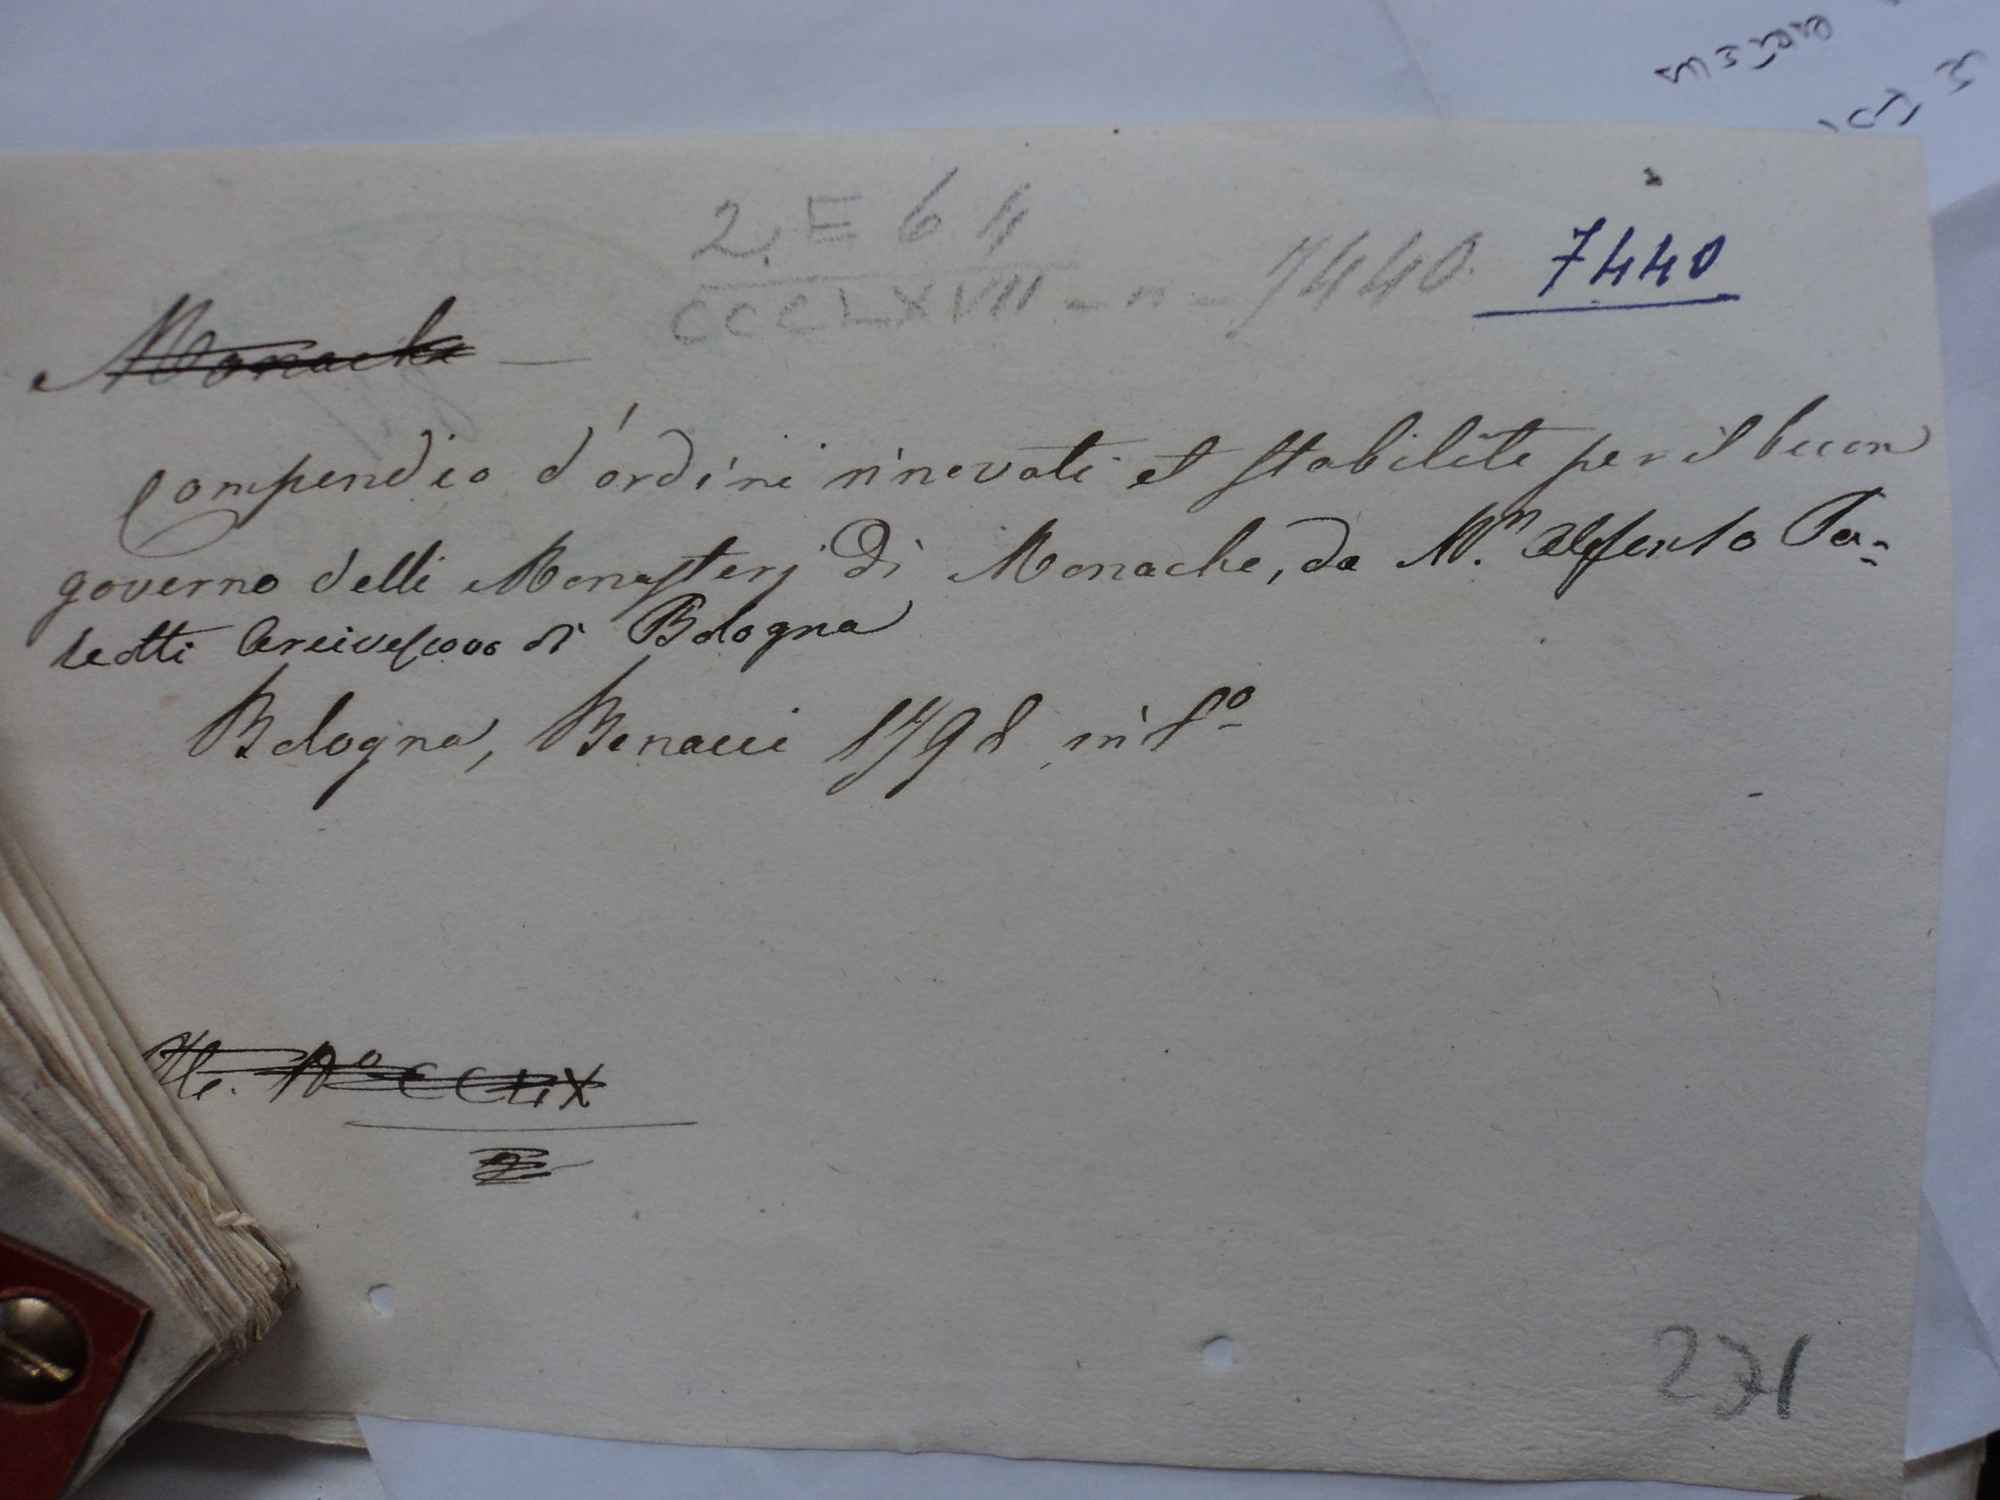 2. E 64
CCCLXVII - n - 7440. 7440
Monache —
Compendio d'ordini rinovati et stabilite per il buon
governo delli Monasterj di Monache, da M.n Alfonso Pa-
leotti Arcivescovo di Bologna
Bologna, Benacci 1798 in f.o
N.o CCLIX
2
271